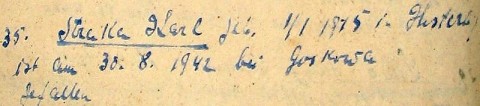 35. Straka Karl geb. 1/1 1915 in
ist am 30. 8. 1942 bei Goskowa
gefallen